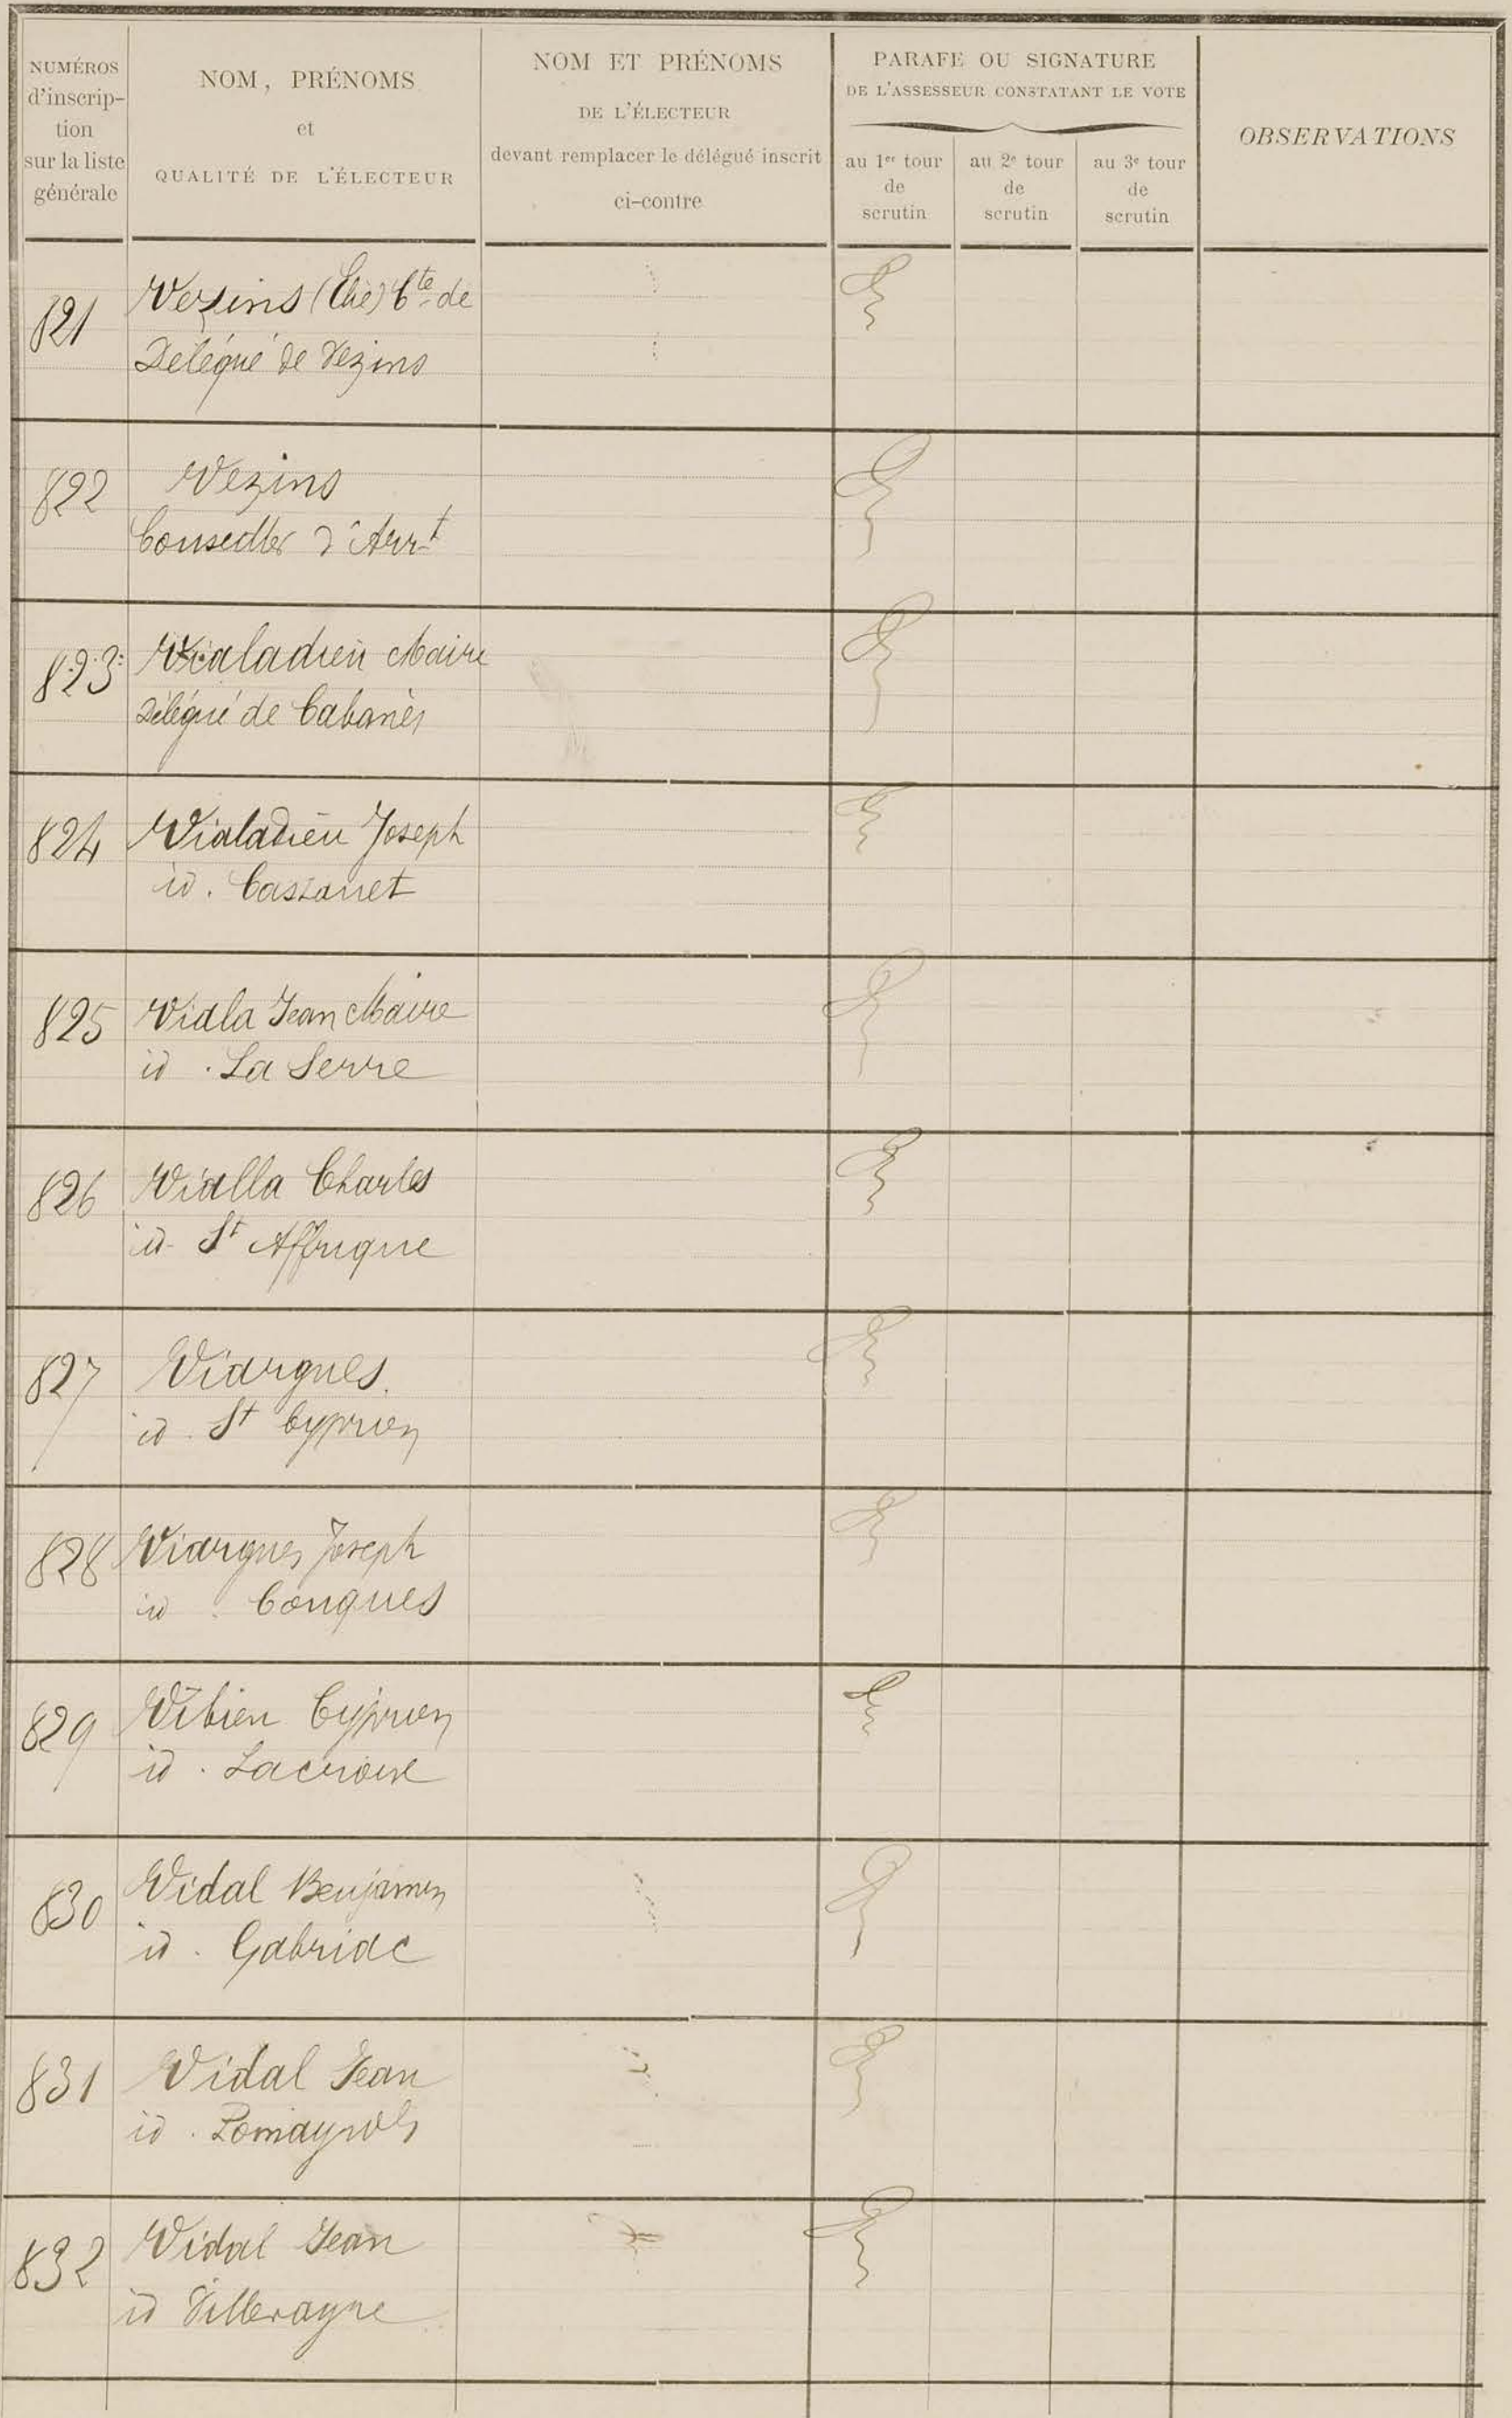 NUMÉROS
d'inscrip-
tion
sur la liste
générale
NOM, PRÉNOMS
et
QUALITÉ DE L'ÉLECTEUR
NOM ET PRÉNOMS
DE L'ÉLECTEUR
devant remplacer le délégué inscrit
ci-contre
PARAFE OU SIGNATURE
DE L'ASSESSEUR CONSTATANT LE VOTE
au 1er tour
de
scrutin
au 2e tour
de
scrutin
au 3e tour
de
scrutin
OBSERVATIONS
821 Vezins (Elie) Cte de
Délégué de Vezins
822 Vezins
Conseiller d'Arrt
823 Vialadieu Maire
Délégué de Cabanès
824 Vialadieu Joseph
id. Cassanet
825 Viala Jean Maire
id. La Serre
826 Vialla Charles
id. St Affrique
827 Viargues
id. St Cyprien
828 Viargues Joseph
id. Conques
829 Vibien Cyprien
id. Lacroix
830 Vidal Benjamin
id. Gabriac
831 Vidal Jean
id. Pomayrols
832 Vidal Jean
id